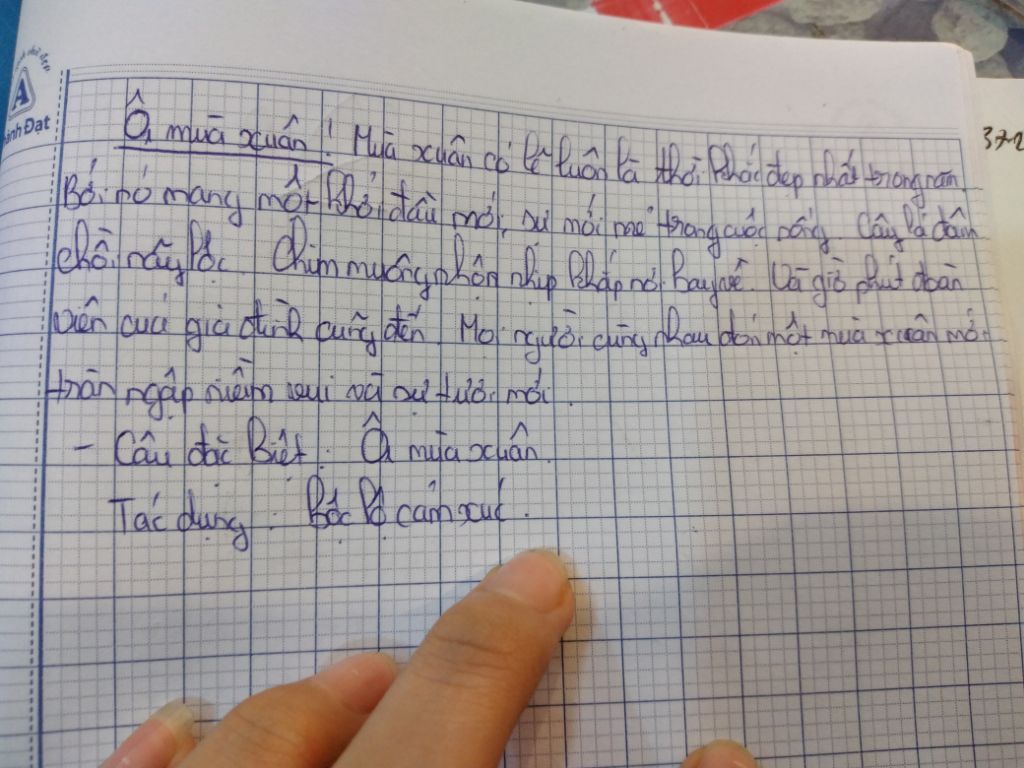 Ôi mùa xuân! Mùa xuân có lẽ luôn là thời khắc đẹp nhất trong năm
Bởi nó mang một khởi đầu mới, sự mới mẻ trong cuộc sống. Cây lá đâm
chồi nảy lộc. Chim muông nhộn nhịp khắp nơi bay về. Và giờ phút đoàn
viên của gia đình cũng đến. Mọi người cùng nhau đón một mùa xuân mới
tràn ngập niềm vui và sự tươi mới.
- Câu đặc biệt: Ôi mùa xuân.
Tác dụng: Bộc lộ cảm xúc.
A
ành Đạt